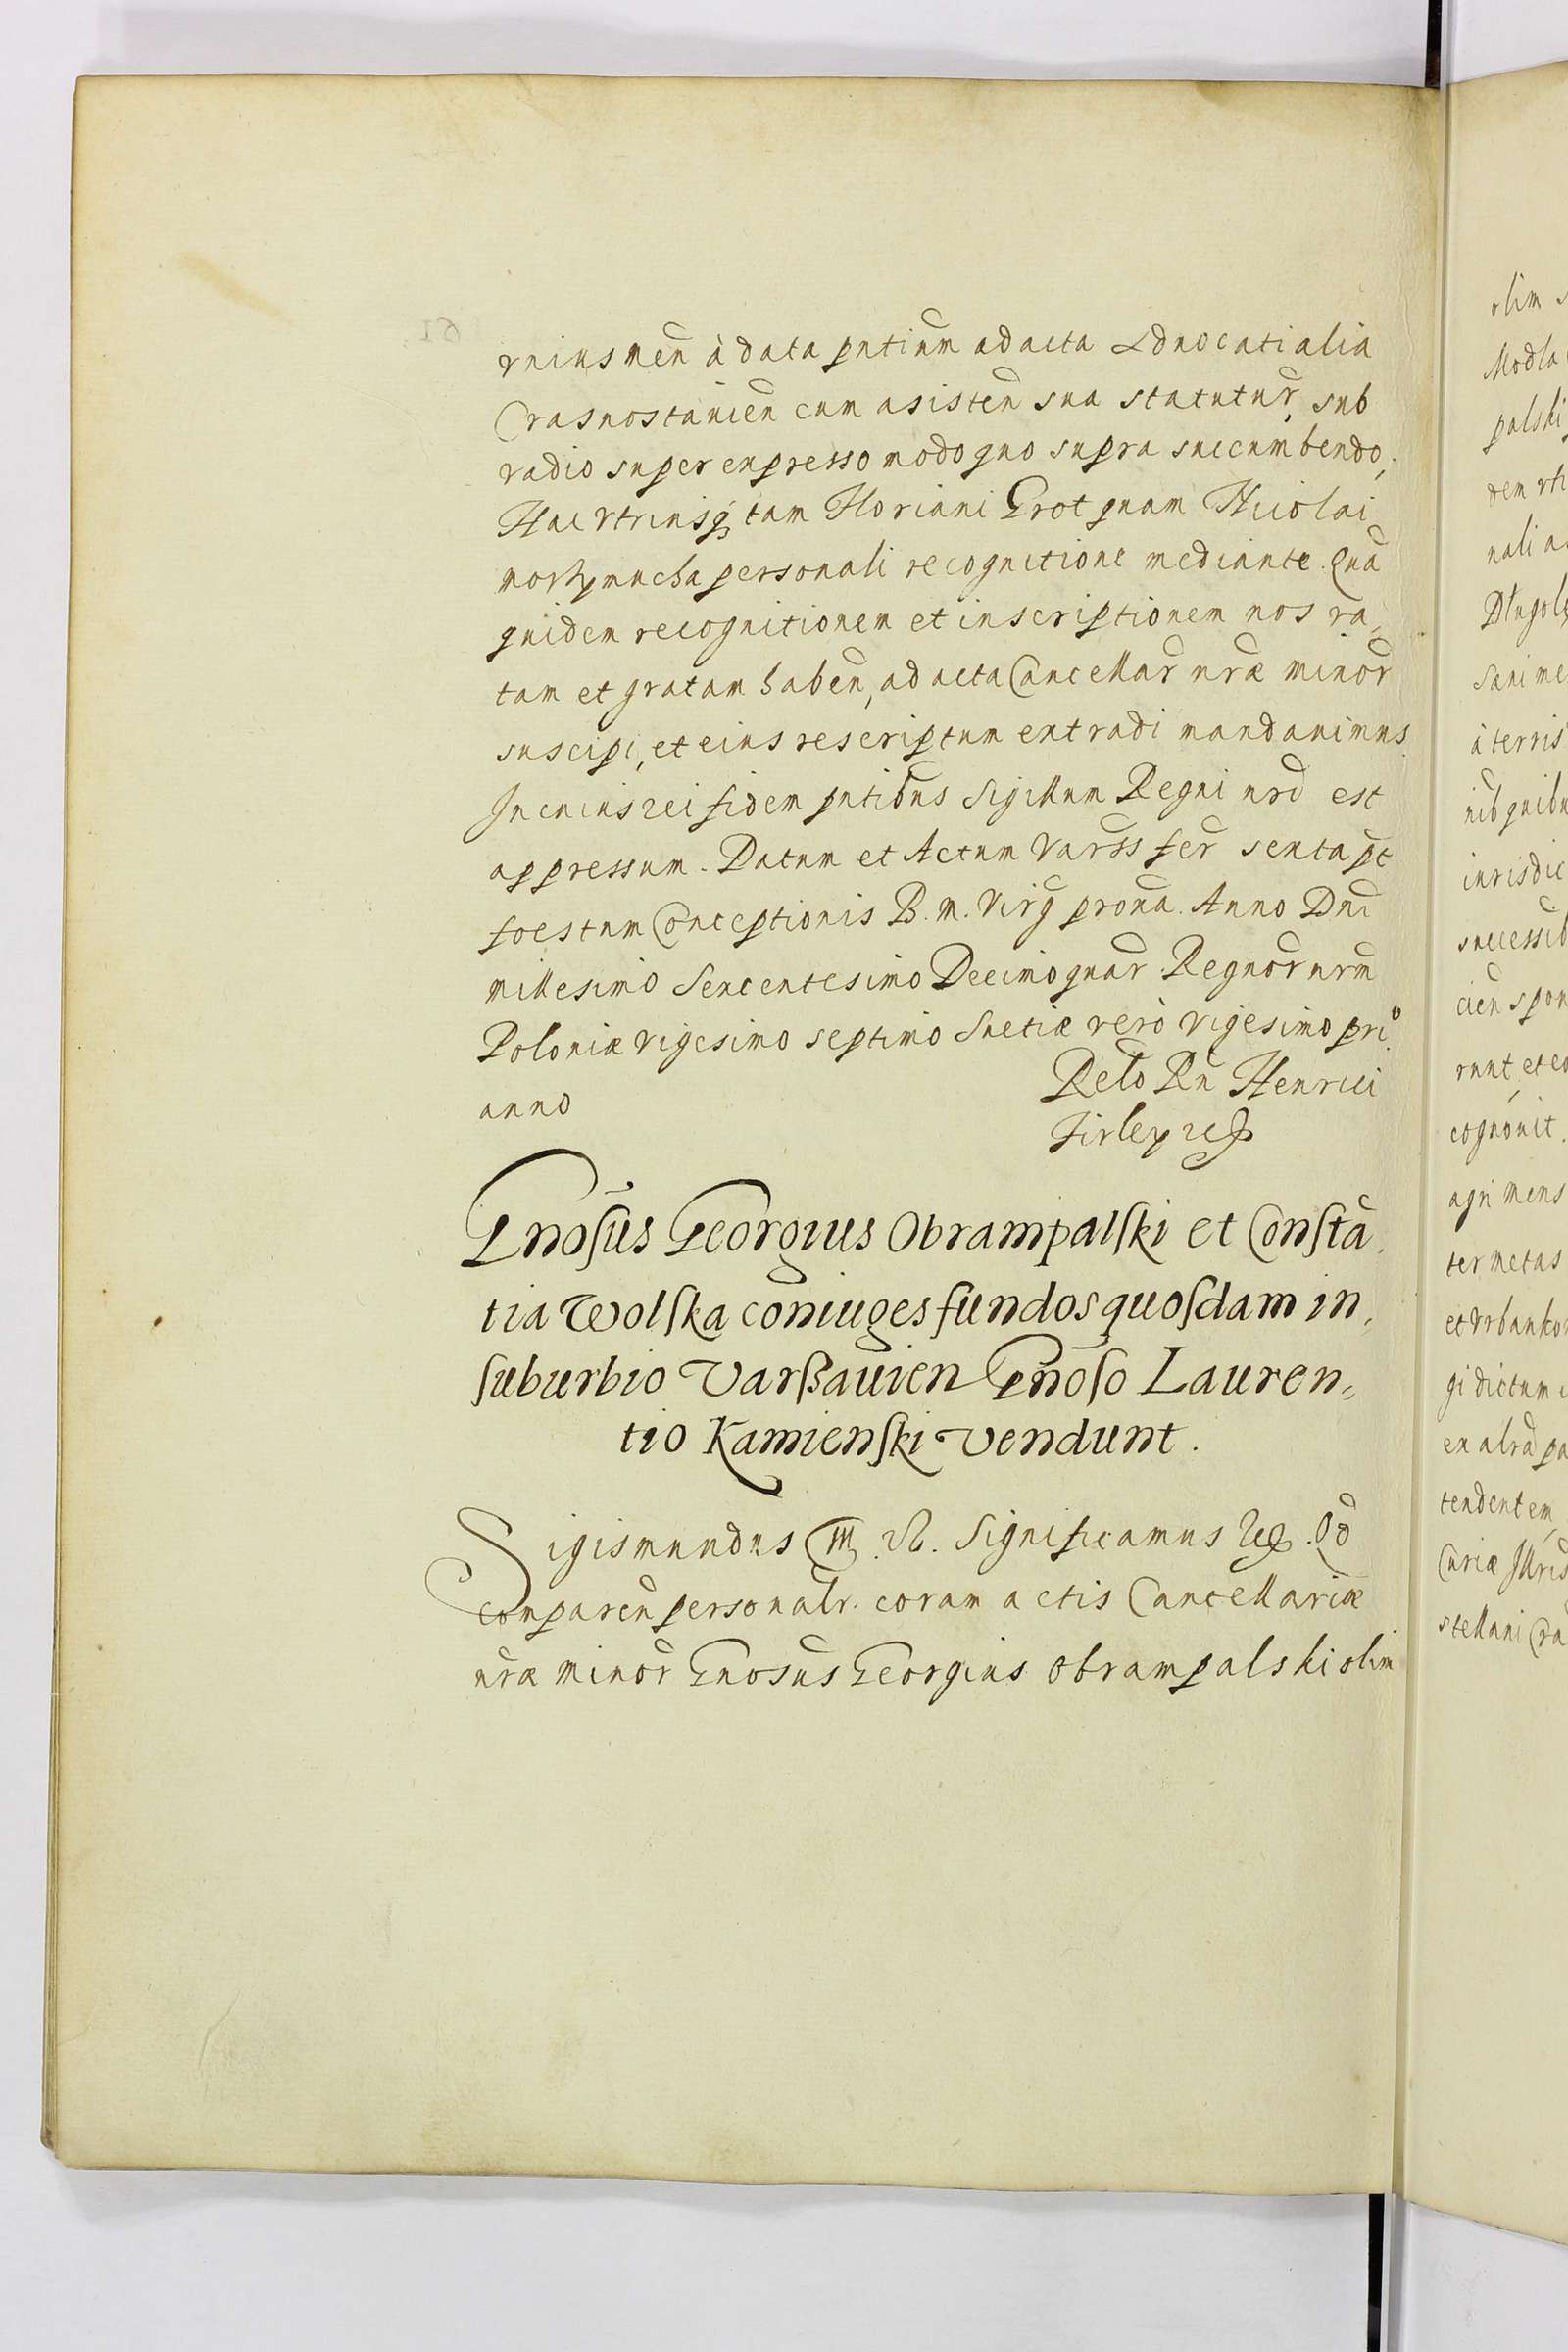 vnius men à data pntium ad acta Aduocatialia
Crasnostauien cum asisten sua statutur, sub
vadio super expresso modo quo supra succumbendo,
Hac vtriusq tam Floriani Grot quam Nicolai
personali recognitione mediante. Qua
quidem recognitionem et inscriptionem nos ra,
tam et gratam haben, ad acta Cancellar nræ minor
suscipi, et eius rescriptum extradi mandauimus
In cuius rei fidem pntibus Sigillum Regni nri est
appressum. Datum et Actum Varss fer sexta pt
foestum Conceptionis B. M. Virg proxa. Anno Dni
millesimo Sexcentesimo Decimo quar Regnor nrm
Poloniæ vigesimo septimo Suetiæ verò vigesimo pri°
anno
Relo Rn Henrici
Firley
Gnosus Georgius Obrampalski et Constã
tia Wolska coniuges fundos quosdam in,
suburbio Varßauien Gnoso Lauren,,
tio Kamienski vendunt.
Sigismundus III. R. Significamus Qd
comparen personalr. coram actis Cancellariæ
nræ minor Gnosus Georgius Obrampalski olim
olim
Modla
palski
dem vti
nali a
Sani me
à terris
nib quibu
iurisdic
successib
cien spon
runt, et eo
cognouit.
agri mens
ter metas
et Vrbanko
gi dictum
ex alra pa
tendentem
Curiæ Illris
stellani Cra